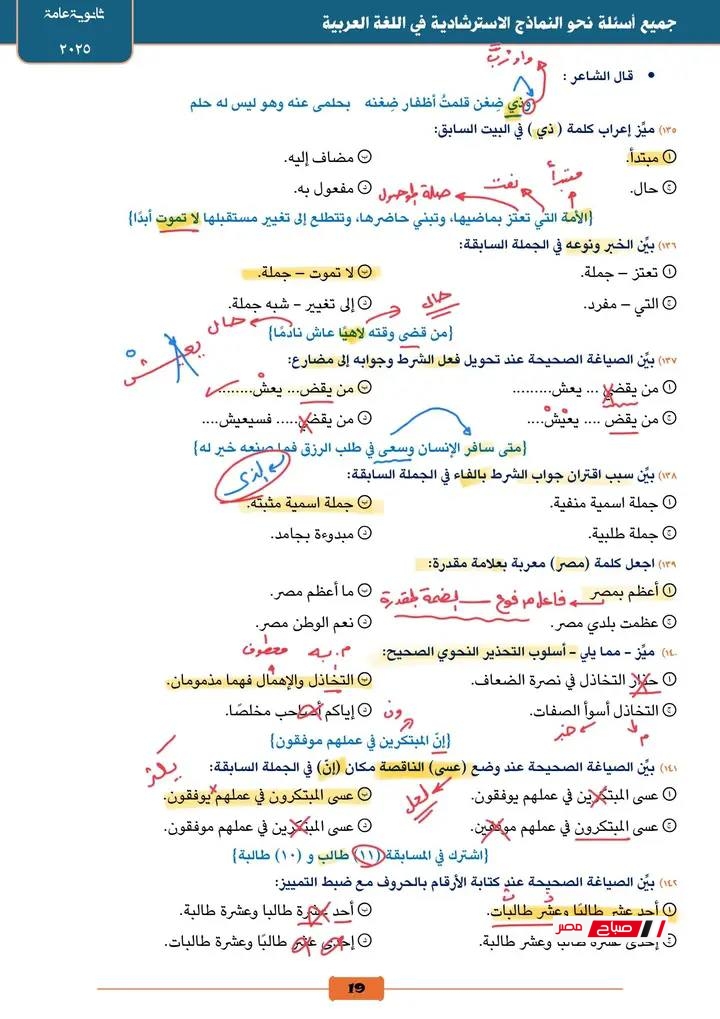 ثانوية عامة
٢٠٢٥
جميع أسئلة نحو النماذج الاسترشادية في اللغة العربية
واو رُبَّ
• قال الشاعر :
وذي ضِغن قلمتُ أظفار ضِغنه بحلمى عنه وهو ليس له حلم
(١٣٥ ميِّز إعراب كلمة (ذي) في البيت السابق:
أ مبتدأ. ب مضاف إليه.
ج حال. د مفعول به.
مبتدأ نعت صلة الموصول
{الأمة التي تعتز بماضيها، وتبني حاضرها، وتتطلع إلى تغيير مستقبلها لا تموت أبدًا}
(١٣٦ بيِّن الخبر ونوعه في الجملة السابقة:
أ تعتز – جملة. ب لا تموت – جملة.
ج التي – مفرد. د إلى تغيير – شبه جملة.
حال حال
{من قضى وقته لاهيًا عاش نادمًا}
يعيش
(١٣٧ بيِّن الصياغة الصحيحة عند تحويل فعل الشرط وجوابه إلى مضارع:
أ من يقضي ... يعش......... ب من يقض... يعشْ........
ج من يقض .... يعيْش.... د من يقضي..... فسيعيش....
{متى سافر الإنسان وسعى في طلب الرزق فما صنعه خير له}
الذى
(١٣٨ بيِّن سبب اقتران جواب الشرط بالفاء في الجملة السابقة:
أ جملة اسمية منفية. ب جملة اسمية مثبتة.
ج جملة طلبية. د مبدوءة بجامد.
(١٣٩ اجعل كلمة (مصر) معربة بعلامة مقدرة:
أ أعظم بمصر ب ما أعظم مصر.
فاعل مرفوع الضمة المقدرة
ج عظمت بلدي مصر. د نعم الوطن مصر.
م. به معطوف
(١٤٠ ميِّز – مما يلي – أسلوب التحذير النحوي الصحيح:
أ حذار التخاذل في نصرة الضعاف. ب التخاذل والإهمال فهما مذمومان.
ج التخاذل أسوأ الصفات. د إياكم أصاحب مخلصًا.
م خبر ون
{إنّ المبتكرين في عملهم موفقون}
(١٤١ بيِّن الصياغة الصحيحة عند وضع (عسى) الناقصة مكان (إنّ) في الجملة السابقة:
أ عسى المبتكرين في عملهم يوفقون. ب عسى المبتكرون في عملهم يوفقون.
لعل
ج عسى المبتكرون في عملهم موفقين. د عسى المبتكرين في عملهم موفقون.
{اشترك في المسابقة (١١) طالب و (١٠) طالبة}
(١٤٢ بيِّن الصياغة الصحيحة عند كتابة الأرقام بالحروف مع ضبط التمييز:
أ أحد عشر طالبًا وعشر طالبات. ب أحد عشرة طالبا وعشرة طالبة.
ج إحدى عشرة طالب وعشر طالبة. د إحدى عشر طالبًا وعشرة طالبات.
صباح مصر
19